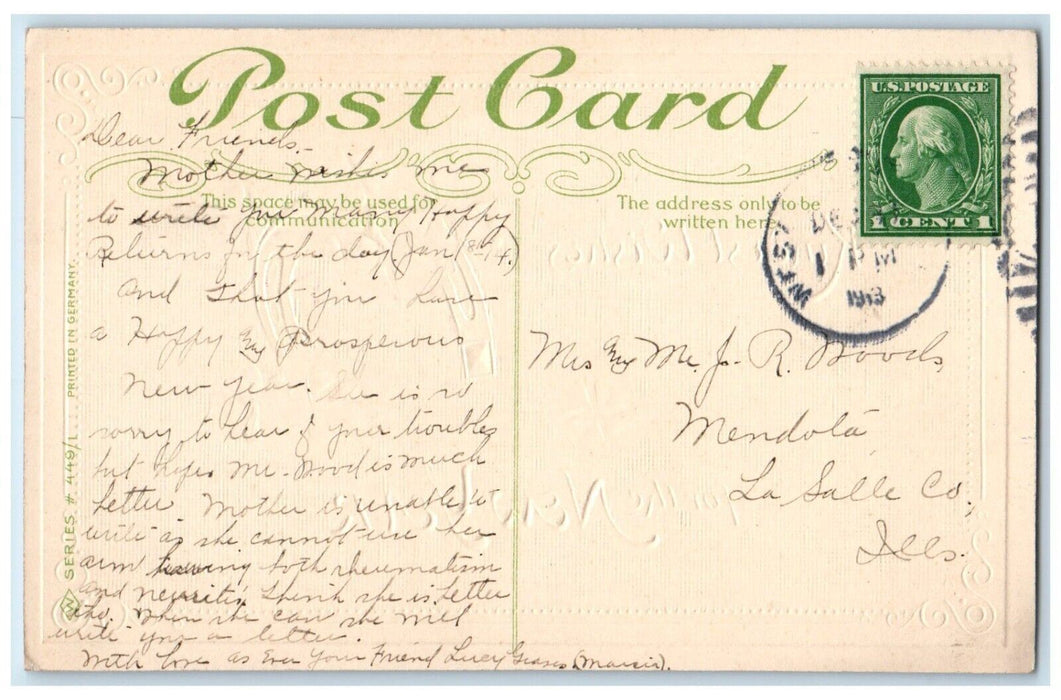 Post Card
U.S. POSTAGE
1 CENT 1
This space may be used for
communication
The address only to be
written here
WEST
DEC
1 PM
1913
Dear Friends.
Mother wishes me
to write you Many Happy
Returns for the day (Jan 1st 14.)
and that you have
a Happy & Prosperous
New year. She is so
sorry to hear of your troubles
but hopes Mr. Wood is much
better Mother is unable to
write as she cannot use her
arm having both rheumatism
and neuritis, think she is better
tho. When she can she will
write you a letter.
With love as Ever Your Friend Lucy
Mrs & Mr. J. R. Woods,
Mendota
La Salle Co.
Ills.
W SERIES # 449/L ... PRINTED IN GERMANY.
Wishes
for the New